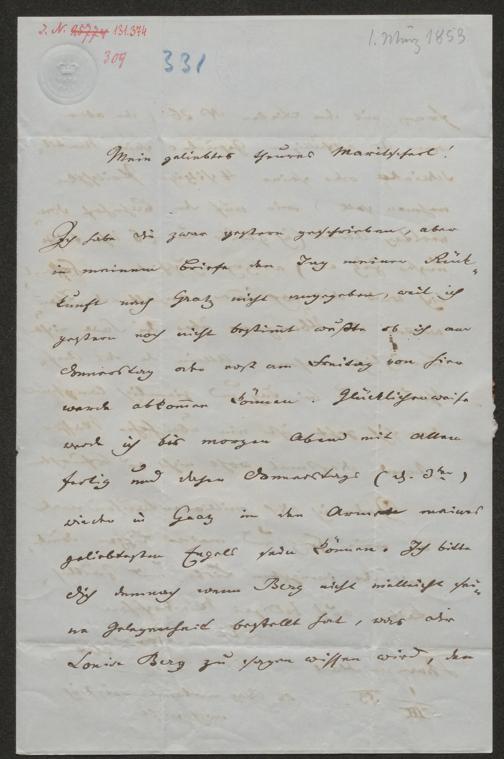 J. N. 25774 131.374
309
331
1. März 1853
Mein geliebtes theures Maritscherl!
Ich habe dir zwar gestern geschrieben, aber
in meinem Briefe den Tag meiner Rück-
kunft nach Gratz nicht angegeben, weil ich
gestern noch nicht bestimmt wußte ob ich am
Donnerstag oder erst am Freitag von hier
werde abkommen können. Glücklicherweise
werde ich bis morgen Abend mit Allem
fertig und daher Donnerstags (d. 3ten)
wieder in Gratz in den Armen meines
geliebtesten Engels sein können. Ich bitte
dich demnach wenn Berg nicht vielleicht sei-
ne Gelegenheit bestellt hat, was dir
Louise Berg zu sagen wissen wird, den